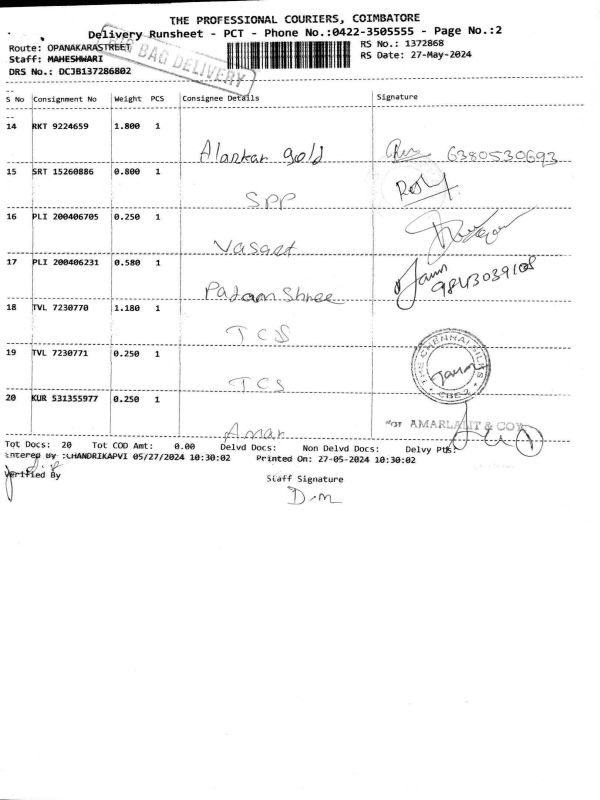 THE PROFESSIONAL COURIERS, COIMBATORE
Delivery Runsheet - PCT - Phone No.:0422-3505555 - Page No.:2
Route: OPANAKARASTREET
RS No.: 1372868
Staff: MAHESHWARI
RS Date: 27-May-2024
DRS No.: DCJB137286802
BIG BAG DELIVERY
S No Consignment No Weight PCS Consignee Details Signature
14 RKT 9224659 1.800 1
Alankar gold 6380530693
15 SRT 15260886 0.800 1
SPP
16 PLI 200406705 0.250 1
Vasant
17 PLI 200406231 0.580 1
Padam Shree 9843039108
18 TVL 7230770 1.180 1
TCS
THE CHENNAI SILKS
CBE-2
19 TVL 7230771 0.250 1
TCS
20 KUR 531355977 0.250 1
AMARLALIT & CO
Amar
Tot Docs: 20 Tot COD Amt: 0.00 Delvd Docs: Non Delvd Docs: Delvy Pts:
Entered By :CHANDRIKAPVI 05/27/2024 10:30:02 Printed On: 27-05-2024 10:30:02
Verified By
Staff Signature